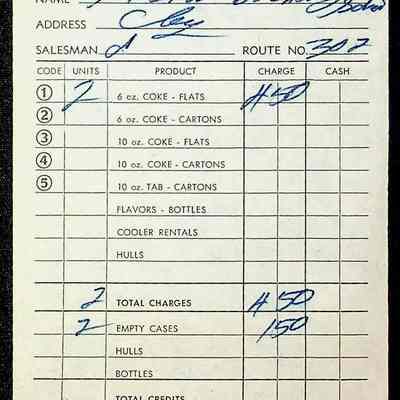 NAME
ADDRESS Clay
SALESMAN ROUTE NO. 302
CODE UNITS PRODUCT CHARGE CASH
1 2 6 oz. COKE - FLATS 4 50
2 6 oz. COKE - CARTONS
3 10 oz. COKE - FLATS
4 10 oz. COKE - CARTONS
5 10 oz. TAB - CARTONS
FLAVORS - BOTTLES
COOLER RENTALS
HULLS
2 TOTAL CHARGES 4 50
2 EMPTY CASES 1 50
HULLS
BOTTLES
TOTAL CREDITS